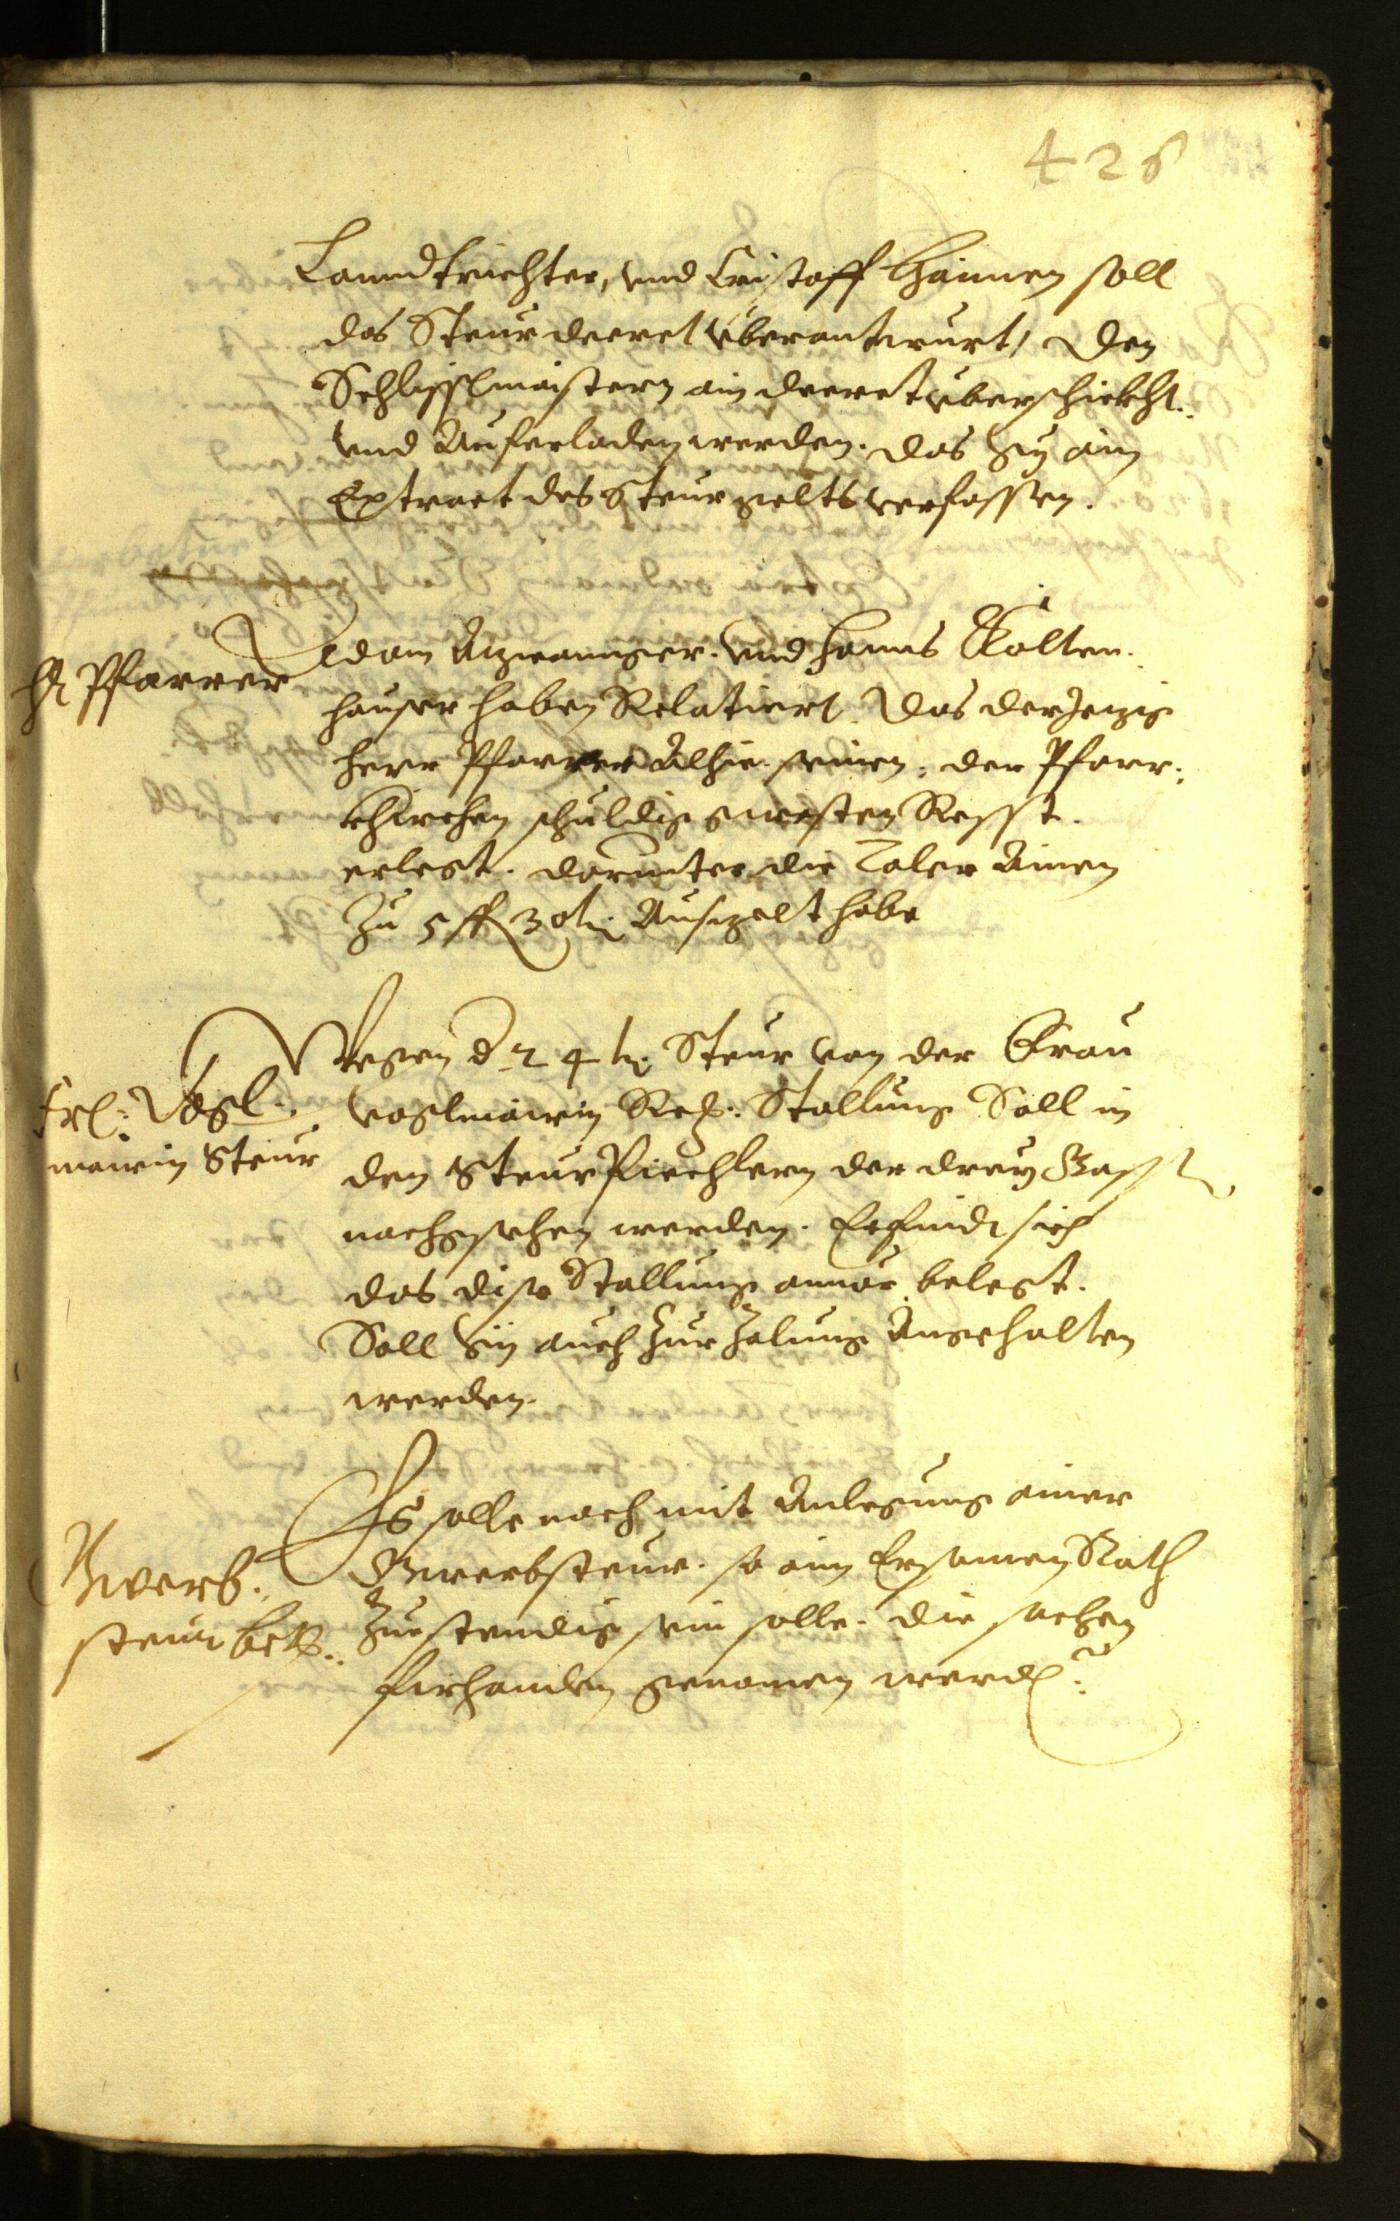 426
Lanndtrichter, vnd Cristoff Hämen soll
das Steurdecret yberantwurt, Den
Schlisslmaistern ain decret yberschickht.
vnd Auferladen werden. das Sy ain
Extract des Steurgelts verfassen.
Hr Pfarrer
Adam Azwannger. vnd Hanns Kolten-
hauser haben Relatiert. Das der Jezig
Herr Pfarrer Alhie seinen, der Pfarr-
khirchen schuldig gwesten Resst.
erlegt. darunter die Taler Ainen
Zu 5 ff 30 kr. Ausgelt habe
Frl: Vogl-
mairin Steur
Wegen d 2 4 kr. Steur von der Frau
Voglmairin Stallung Soll in
den Steur Piechlern der drey
nachgesehen werden. Erfindt sich
das dise Stallung annor belegt.
Soll Sy auch Zur Zalung Angehalten
werden.
Gwerb-
steur betr.
Es solle noch mit Anlegung ainer
Gwerbsteur. so aim Ersamen Rath
Zuestendig sein solle. die sachen
firhanden genomen werd